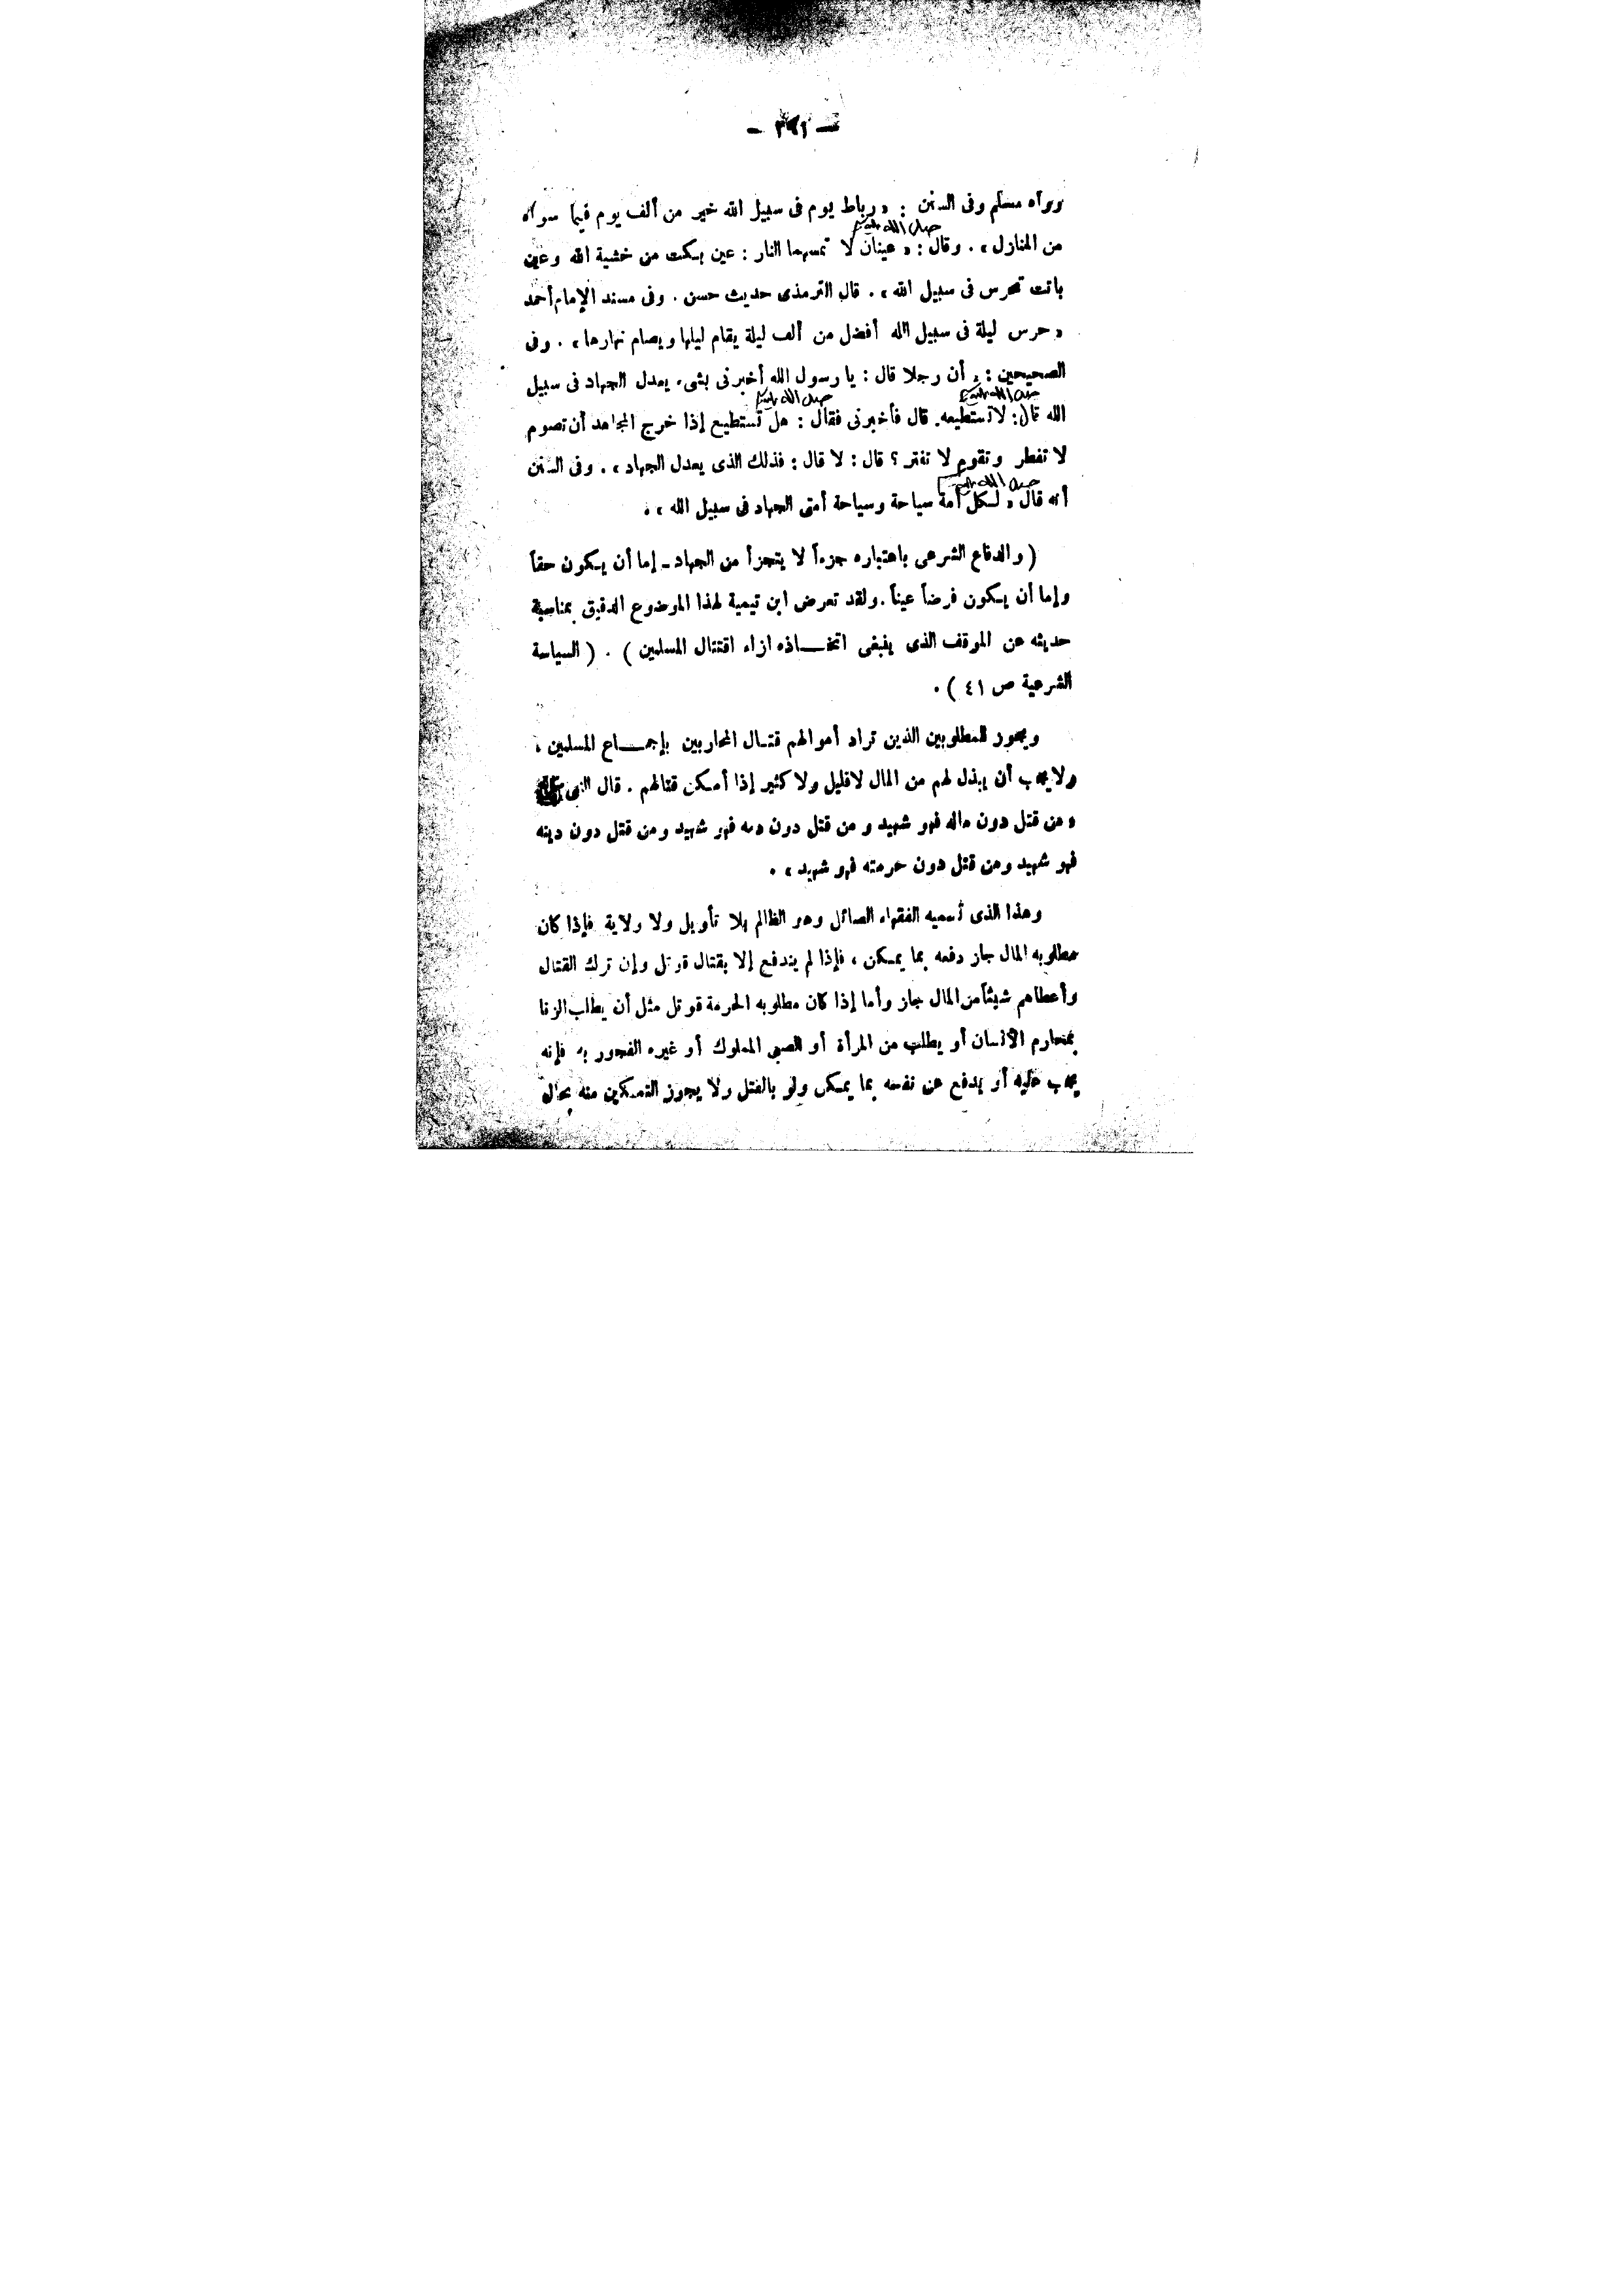 رواه مسلم وفى السنن : « رباط يوم فى سبيل الله خير من ألف يوم فيما سواه
من المنازل » . وقال صلى الله عليه وسلم : « عينان لا تمسهما النار : عين بكت من خشية الله وعين
باتت تحرس فى سبيل الله » . قال الترمذى حديث حسن . وفى مسند الإمام أحمد
« حرس ليلة فى سبيل الله أفضل من ألف ليلة يقام ليلها ويصام نهارها » . وفى
الصحيحين : « أن رجلا قال : يا رسول الله أخبرنى بشىء يعدل الجهاد فى سبيل
الله قال صلى الله عليه وسلم : لا تستطيعه. قال فأخبرنى فقال صلى الله عليه وسلم : هل تستطيع إذا خرج المجاهد أن تصوم
لا تفطر وتقوم لا تفتر ؟ قال : لا قال : فذلك الذى يعدل الجهاد » . وفى السنن
أنه قال صلى الله عليه وسلم « لكل أمة سياحة وسياحة أمتى الجهاد فى سبيل الله » .
( والدفاع الشرعى باعتباره جزءاً لا يتجزأ من الجهاد - إما أن يكون حقاً
وإما أن يكون فرضاً عيناً . ولقد تعرض ابن تيمية لهذا الموضوع الدقيق بمناسبة
حديثه عن الموقف الذى ينبغى اتخاذه ازاء اقتتال المسلمين ) . ( السياسة
الشرعية ص ٤١ ) .
ويجوز للمطلوبين الذين تراد أموالهم قتال المحاربين بإجماع المسلمين ،
ولا يجب أن يبذل لهم من المال لا قليل ولا كثير إذا أمكن قتالهم . قال النبى
« من قتل دون ماله فهو شهيد ومن قتل دون دمه فهو شهيد ومن قتل دون دينه
فهو شهيد ومن قتل دون حرمته فهو شهيد » .
وهذا الذى تسميه الفقهاء الصائل وهو الظالم بلا تأويل ولا ولاية فإذا كان
مطلوبه المال جاز دفعه بما يمكن ، فإذا لم يندفع إلا بقتال قوتل وإن ترك القتال
وأعطاهم شيئاً من المال جاز وأما إذا كان مطلوبه الحرمة قوتل مثل أن يطلب الزنا
بمحارم الأنسان أو يطلب من المرأة أو الصبى المملوك أو غيره الفجور به فإنه
يجب عليه أن يدفع عن نفسه بما يمكن ولو بالقتل ولا يجوز التمكين منه بحال